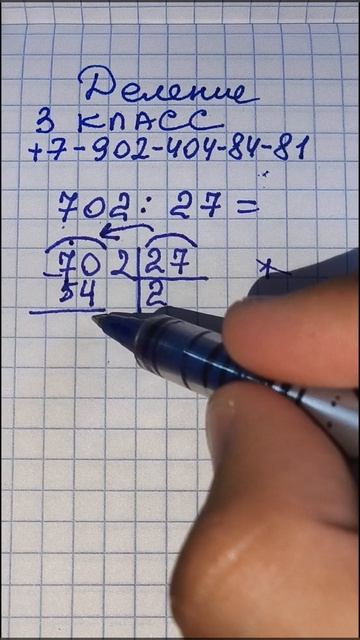 Деление
3 КЛАСС
+7-902-404-84-81
702: 27 =
702 27
54 2